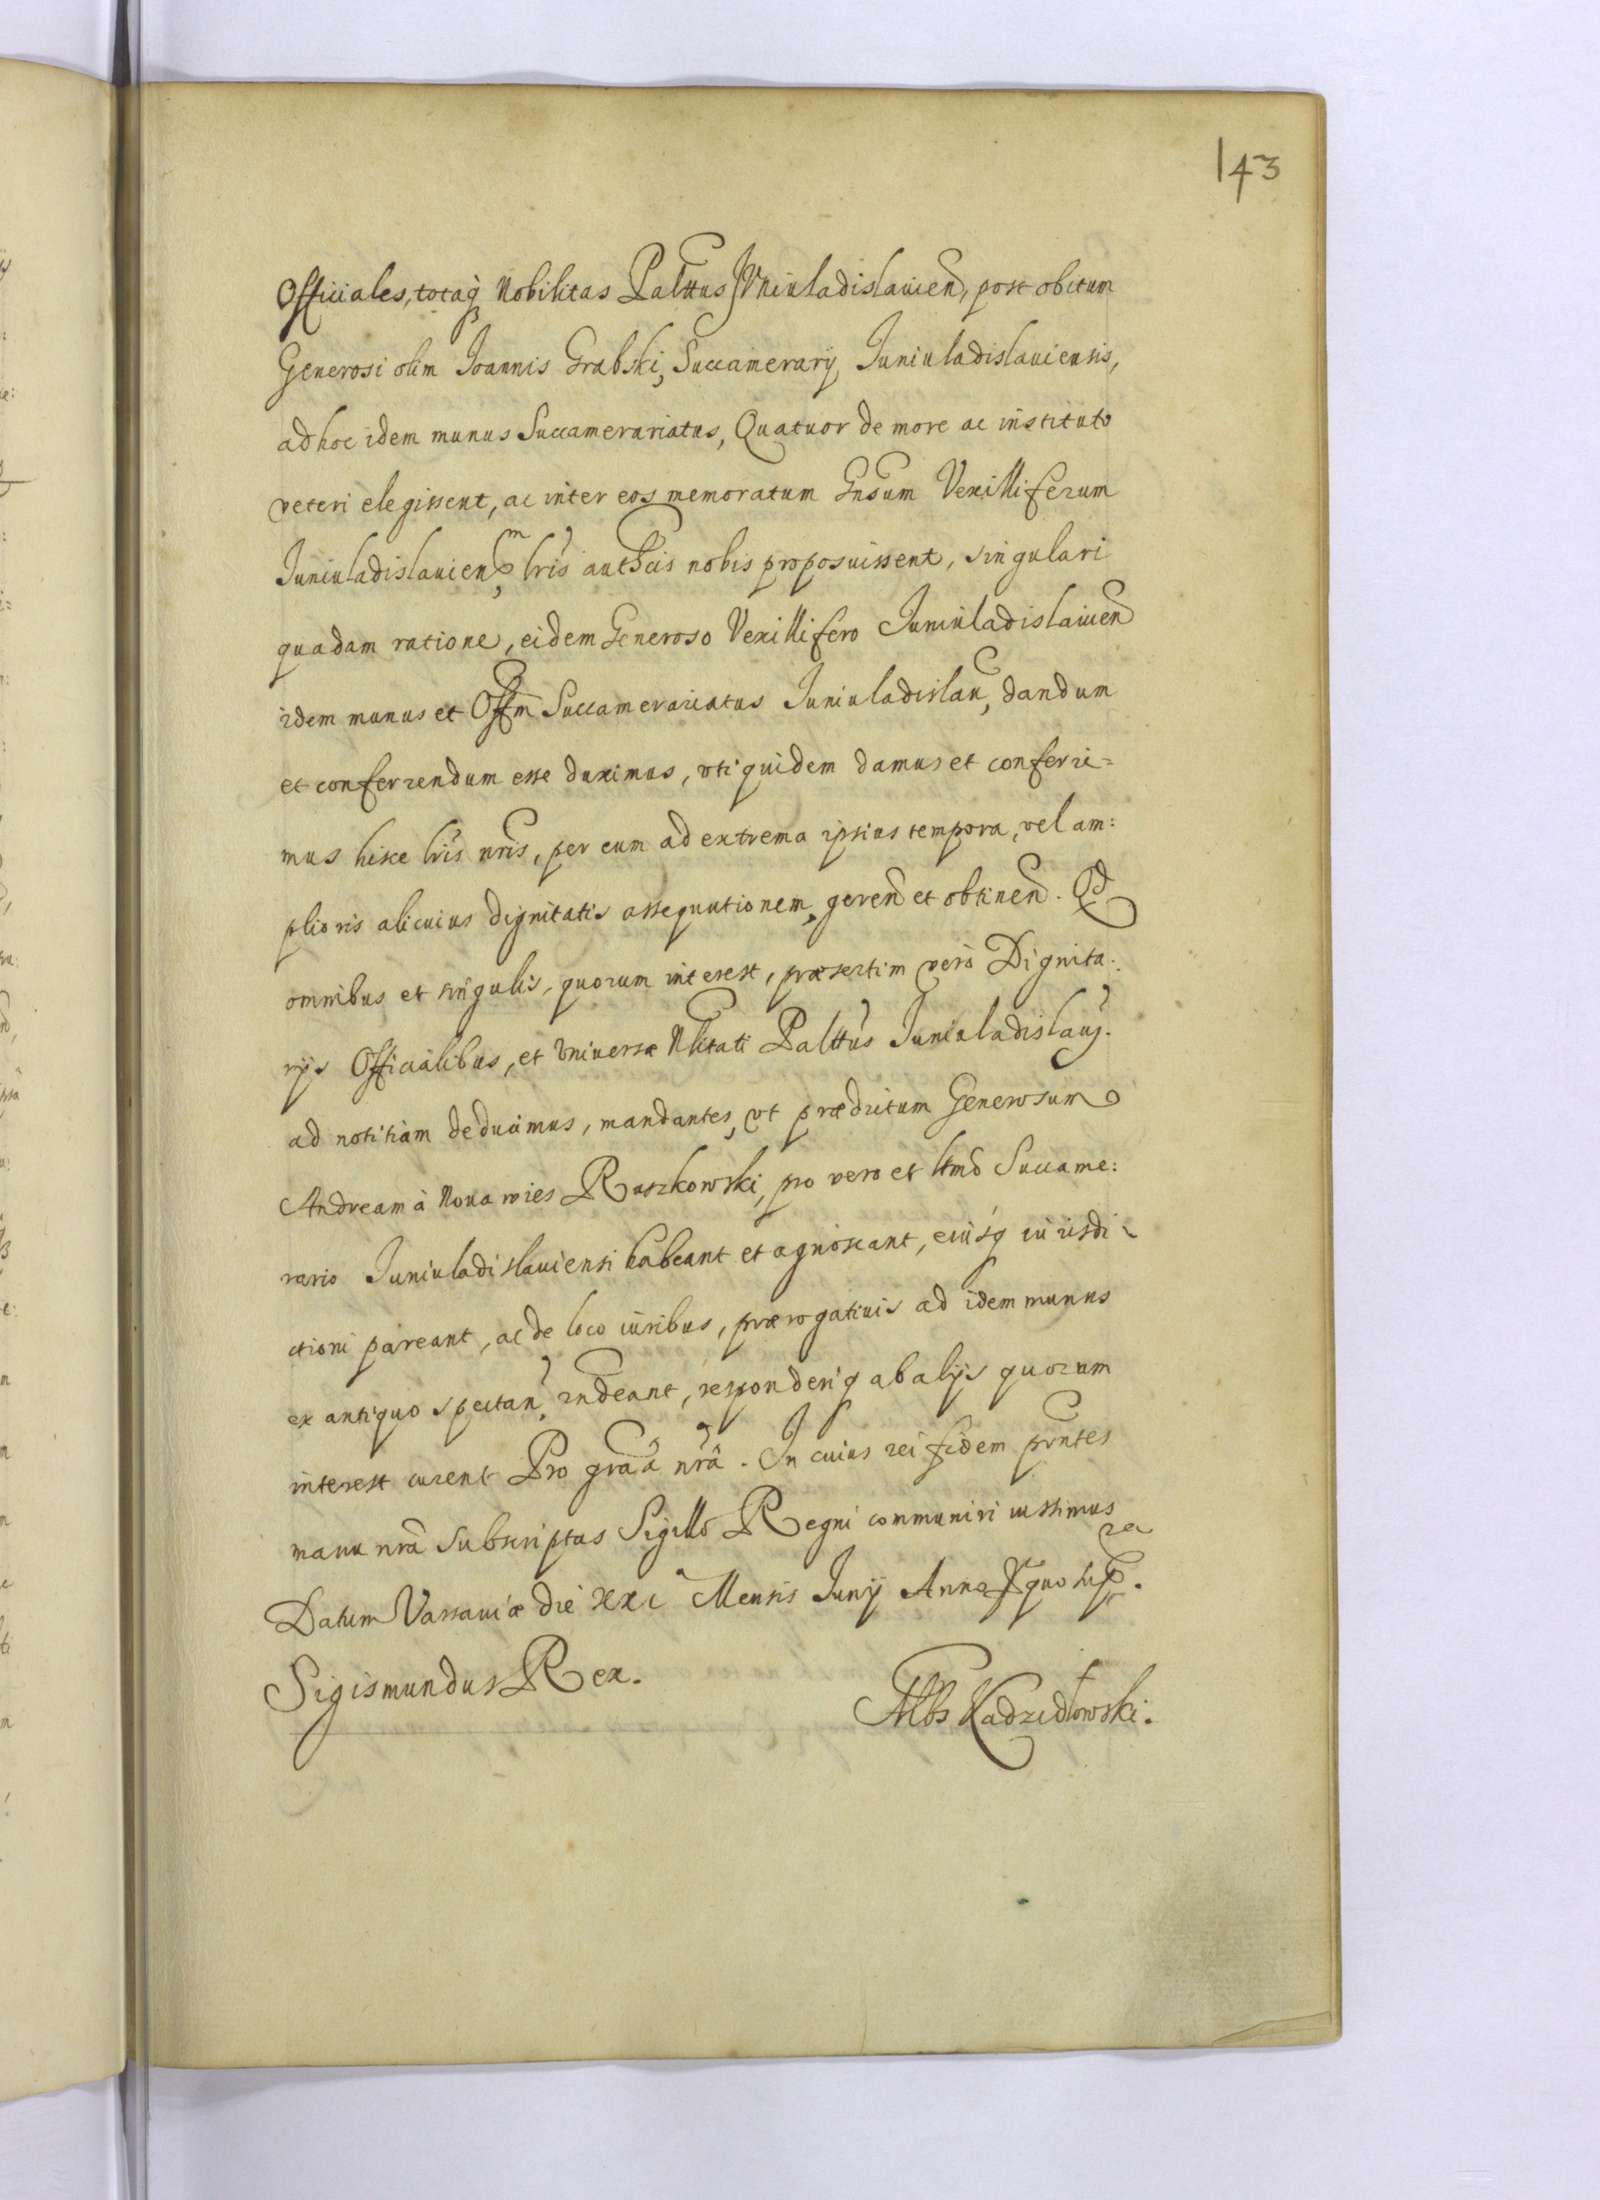 143
Officiales, totaq₃ Nobilitas Palttus Iuniuladislauien, post obitum
Generosi olim Ioannis Grabski, Succamerarij Iuniuladislauiensis,
ad hoc idem munus Succamerariatus, Quatuor de more ac instituto
veteri elegissent, ac inter eos memoratum Gnsum Vexilliferum
Iuniuladislauien, lris authcis nobis proposuissent, singulari
quadam ratione, eidem Generoso Vexillifero Iuniuladislauien
idem munus et Offm Succamerariatus Iuniuladislau, dandum
et conferrendum esse duximus, vti quidem damus et conferri=
mus hisce lris nris, per eum ad extrema ipsius tempora, vel am:
plioris alicuius dignitatis assequutionem, geren et obtinen. Qd
omnibus et singulis, quorum interest, præsertim verò Dignita:
rijs Officialibus, et vniversæ Nlitati Palttus Iuniuladislauj.
ad notitiam deducimus, mandantes, vt prædictum Generosum
Andream à Nova wies Ruszkowski, pro vero et ltmo Succame:
rario Iuniuladislauiensi habeant et agnoscant, eiusq iurisdi-
ctioni pareant, ac de loco iuribus, prærogativis ad idem munus
ex antiquo spectan, rndeant, responderiq ab alijs quorum
interest curent Pro graâ nrâ. In cuius rei fidem pntes
manu nrâ subscriptas Sigillo Regni communiri iussimus
Datum Varsaviæ die XXI Mensis Iunij Anno quo sup.
Sigismundus Rex.
Albs Kadzidłowski.